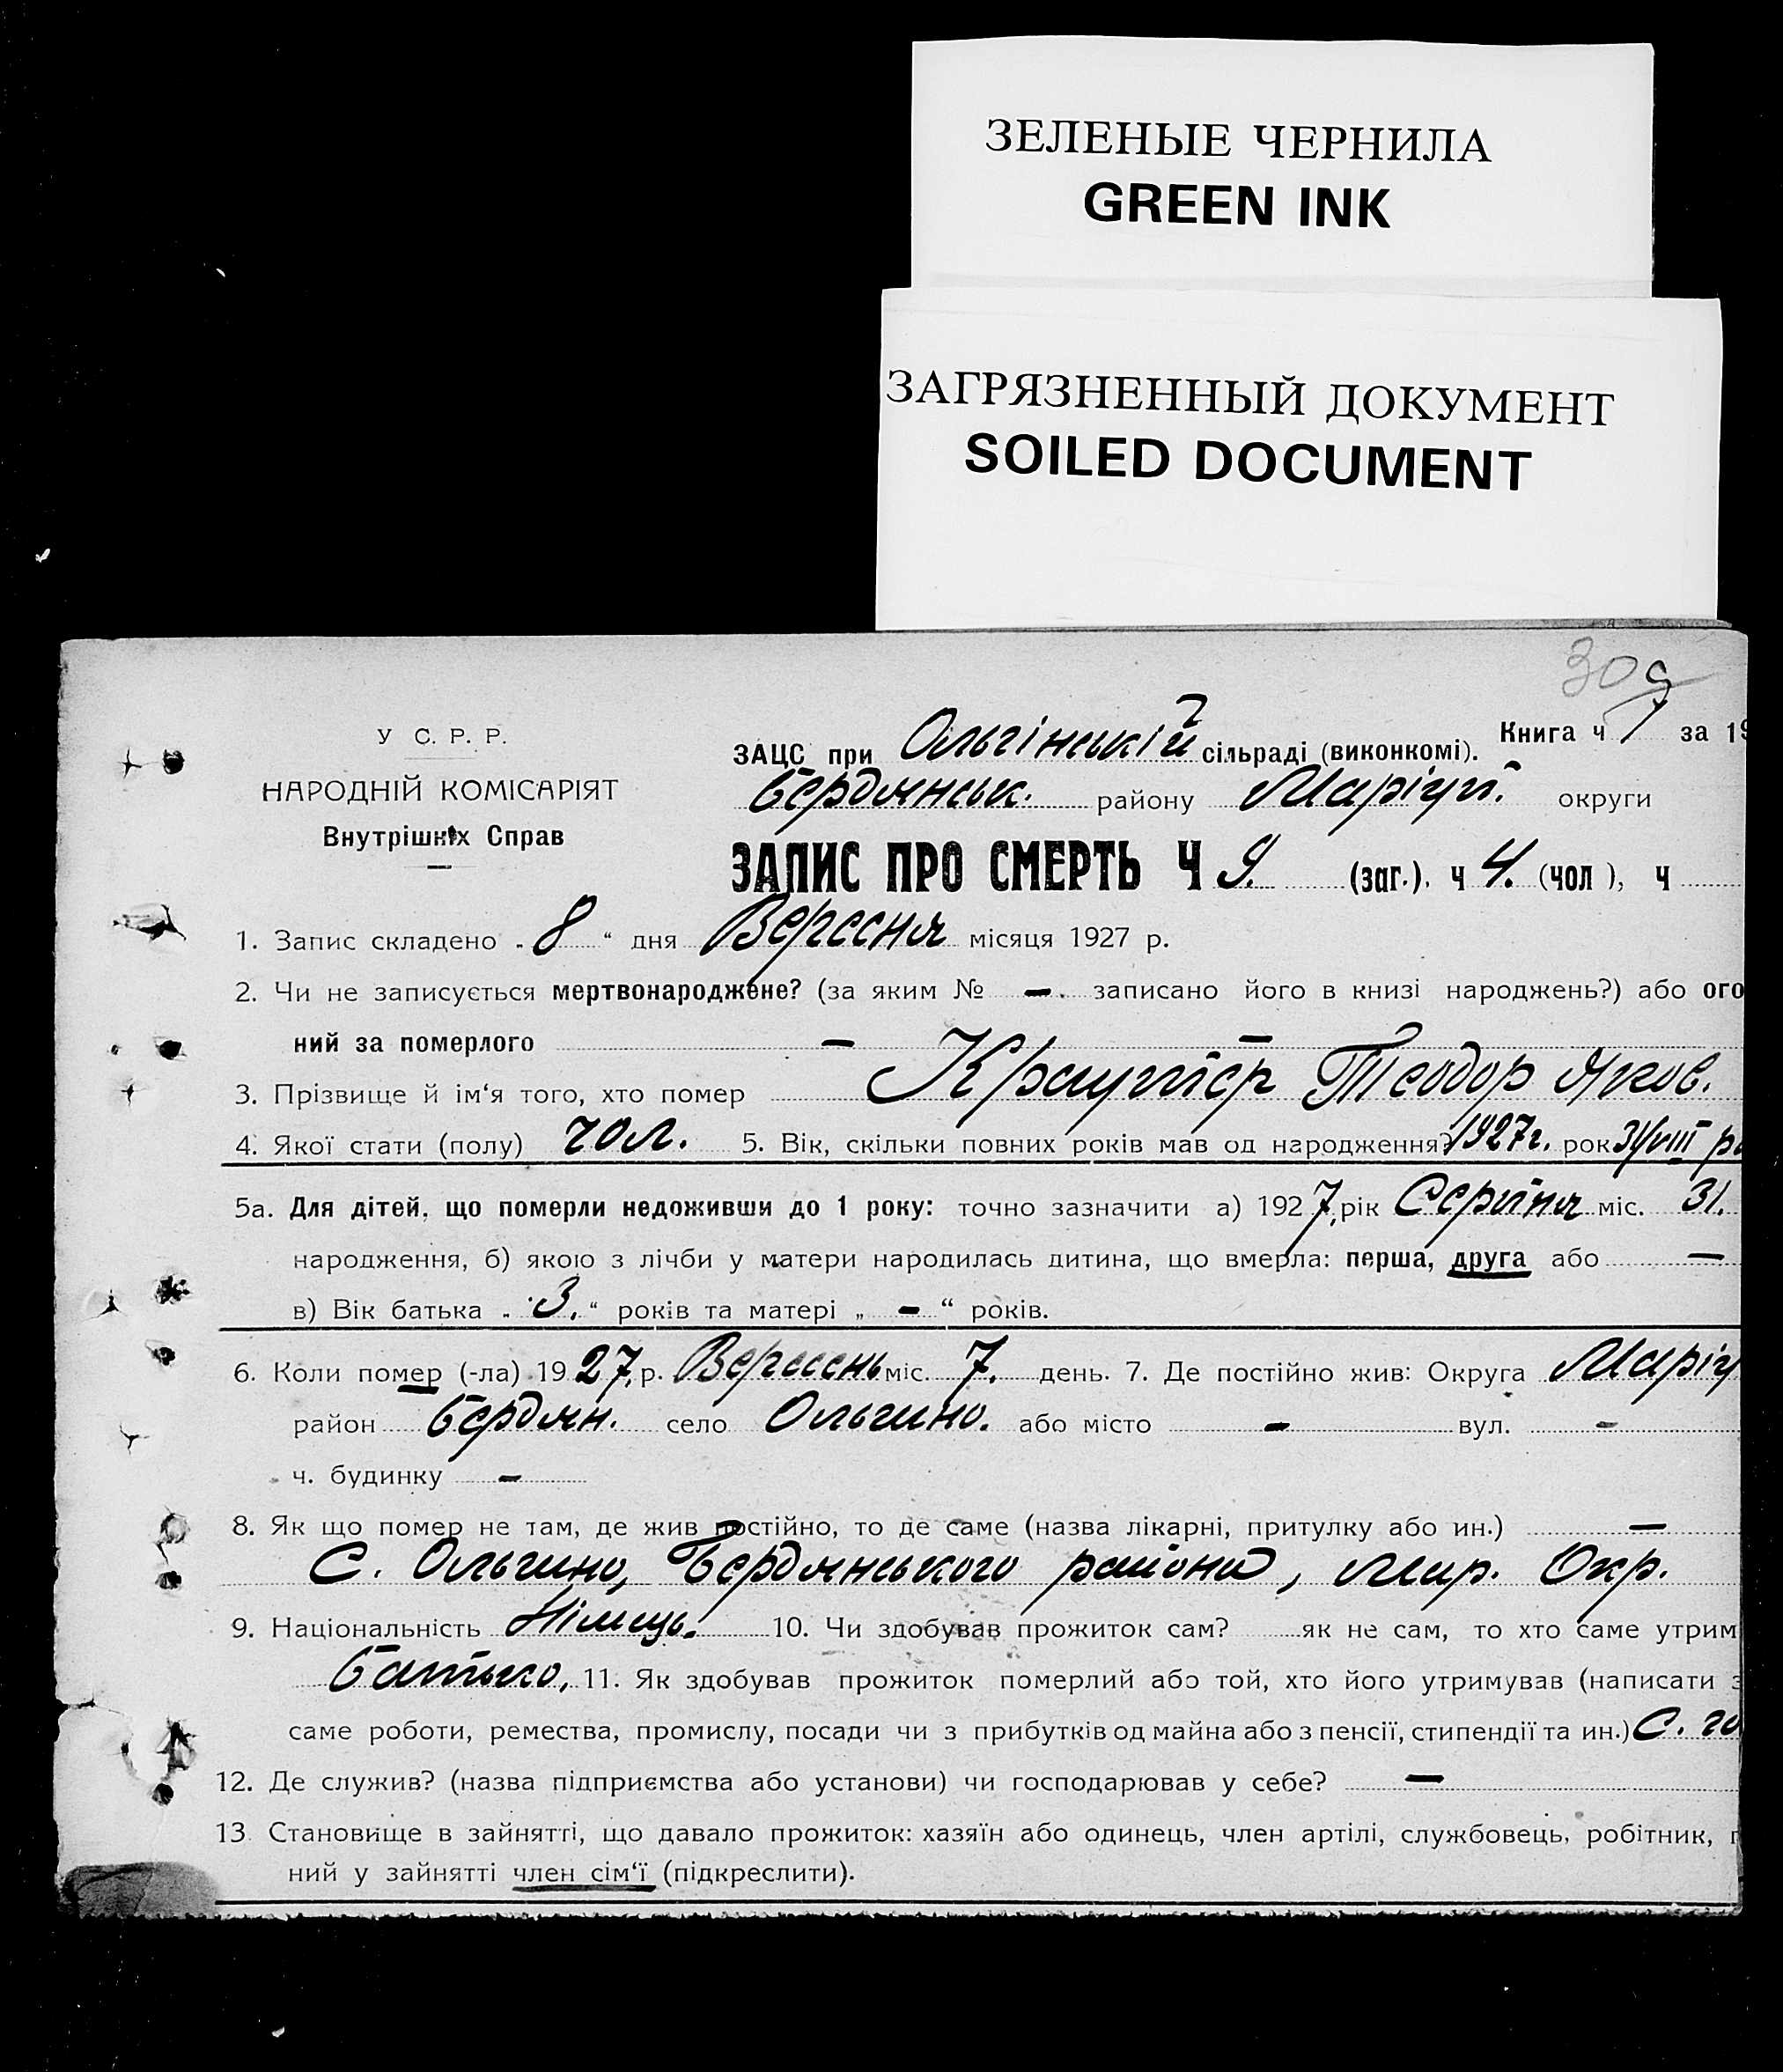 ЗЕЛЕНЫЕ ЧЕРНИЛА
GREEN INK
ЗАГРЯЗНЕННЫЙ ДОКУМЕНТ
SOILED DOCUMENT
30
У С. Р. Р.
НАРОДНІЙ КОМІСАРІЯТ
Внутрішніх Справ
Книга ч 1 за 19
ЗАЦС при Ольгінській сільраді (виконкомі).
Бердянськ. району Маріуп. округи
ЗАПИС ПРО СМЕРТЬ Ч 9. (заг.). ч 4. (чол ), ч
1. Запис складено „ 8 “ дня Вересня місяця 1927 р.
2. Чи не записується мертвонароджене? (за яким № — . записано його в книзі народжень?) або ого
ний за померлого —
3. Прізвище й ім‘я того, хто помер Краутер Теодор Яков.
4. Якої стати (полу) чол. 5. Вік, скільки повних років мав од народження? 1927г. рок 31/VIII р
5а. Для дітей, що померли недоживши до 1 року: точно зазначити а) 1927, рік Серпня міс. 31.
народження, б) якою з лічби у матери народилась дитина, що вмерла: перша, друга або —
в) Вік батька „ 3. “ років та матері „ — “ років.
6. Коли помер (-ла) 1927, р. Вересень міс. 7. день. 7. Де постійно жив: Округа Маріу
район Бердян. село Ольгино. або місто — вул. —
ч. будинку —
8. Як що помер не там, де жив постійно, то де саме (назва лікарні, притулку або ин.) —
С. Ольгино, Бердянського района, Мар. Окр.
9. Національність Німець. 10. Чи здобував прожиток сам? як не сам, то хто саме утрим
батько, 11. Як здобував прожиток померлий або той, хто його утримував (написати з
саме роботи, ремества, промислу, посади чи з прибутків од майна або з пенсії, стипендії та ин.) С. го
12. Де служив? (назва підприємства або установи) чи господарював у себе? —
13. Становище в зайнятті, що давало прожиток: хазяїн або одинець, член артілі, службовець, робітник, п
ний у зайнятті член сім‘ї (підкреслити).